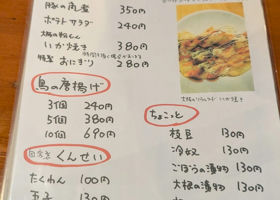 豚の角煮 350円
ポテトサラダ 240円
大阪の粉もん
いか焼き 380円
特製 おにぎり 280円
鳥の唐揚げ
3個 240円
5個 380円
10個 690円
自家製 くんせい
たくわん 100円
玉子 130円
ちょこっと
枝豆 130円
冷奴 130円
ごぼうの漬物 130円
大根の漬物 130円